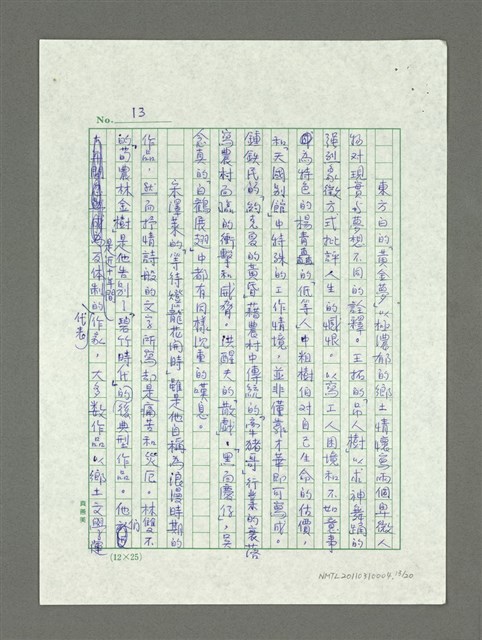 No. 13
東方白的「黃金夢」以極濃郁的鄉土情懷寫兩個卑微人
物对現實与夢想不同的詮釋。王拓的「吊人樹」以求神舞蹈的
強烈象徵方式批評人生的憾恨。以寫工人困境和不如意事
為特色的楊青矗的「低等人」中粗樹伯对自己生命的估價，
和「天國別館」中特殊的工作情境，並非僅靠才華即可寫成。
鍾鉄民的「約克夏的黃昏」藉農村中傳統的「牽豬哥」行業的衰落
寫農村面臨的衝擊和威脅。洪醒夫的「散戲」，黑面慶仔」，吳
念真的「白鶴展翅」中都有同樣沉重的嘆息。
宋澤萊的「等待燈籠花開時」雖是他自稱為浪漫時期的
作品，然而抒情詩般的文字所寫却是痛苦和災厄。林雙不
的「筍農林金樹」是他告別「碧竹時代」的後典型作品。他們
是近十年間
代表
体制的作家，大多數作品以鄉土文學運
(12×25)
NMTL20110310004, 13/20